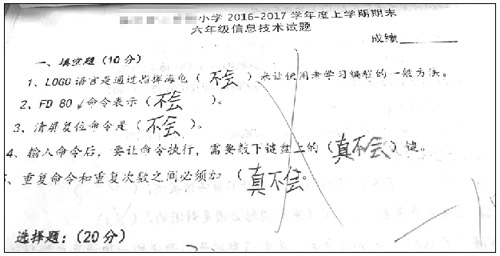 小学 2016-2017 学年度上学期期末
六年级信息技术试题
成绩
一、填空题(10分)
1、LOGO 语言是通过指挥海龟( 不会 )来让使用者学习编程的一般方法。
2、FD 80 命令表示( 不会 )。
3、清屏复位命令是( 不会 )。
4、输入命令后,要让命令执行,需要敲下键盘上的( 真不会 )键。
、重复命令和重复次数之间必须加( 真不会 。
选择题:(20分)